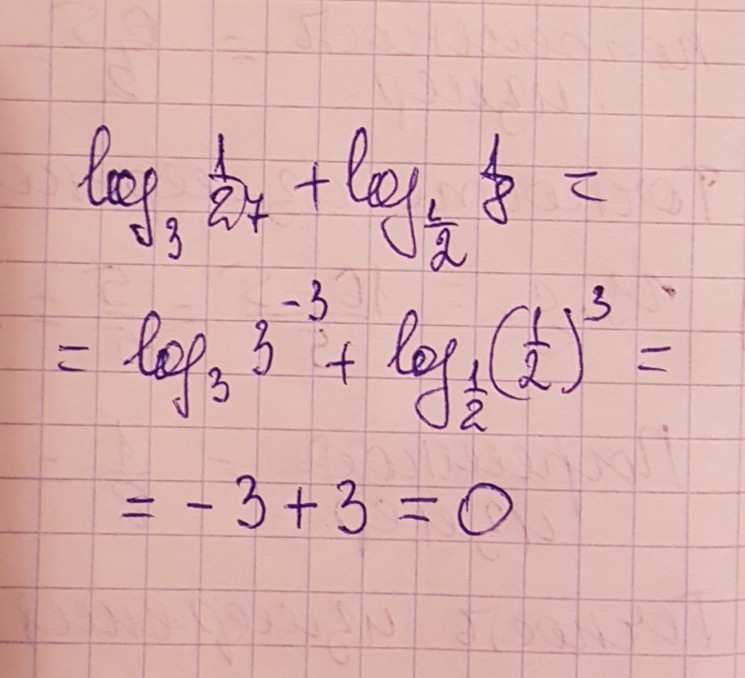 log₃ 1/27 + log_{1/2} 1/8 =
= log₃ 3⁻³ + log_{1/2} (1/2)³ =
= - 3 + 3 = 0